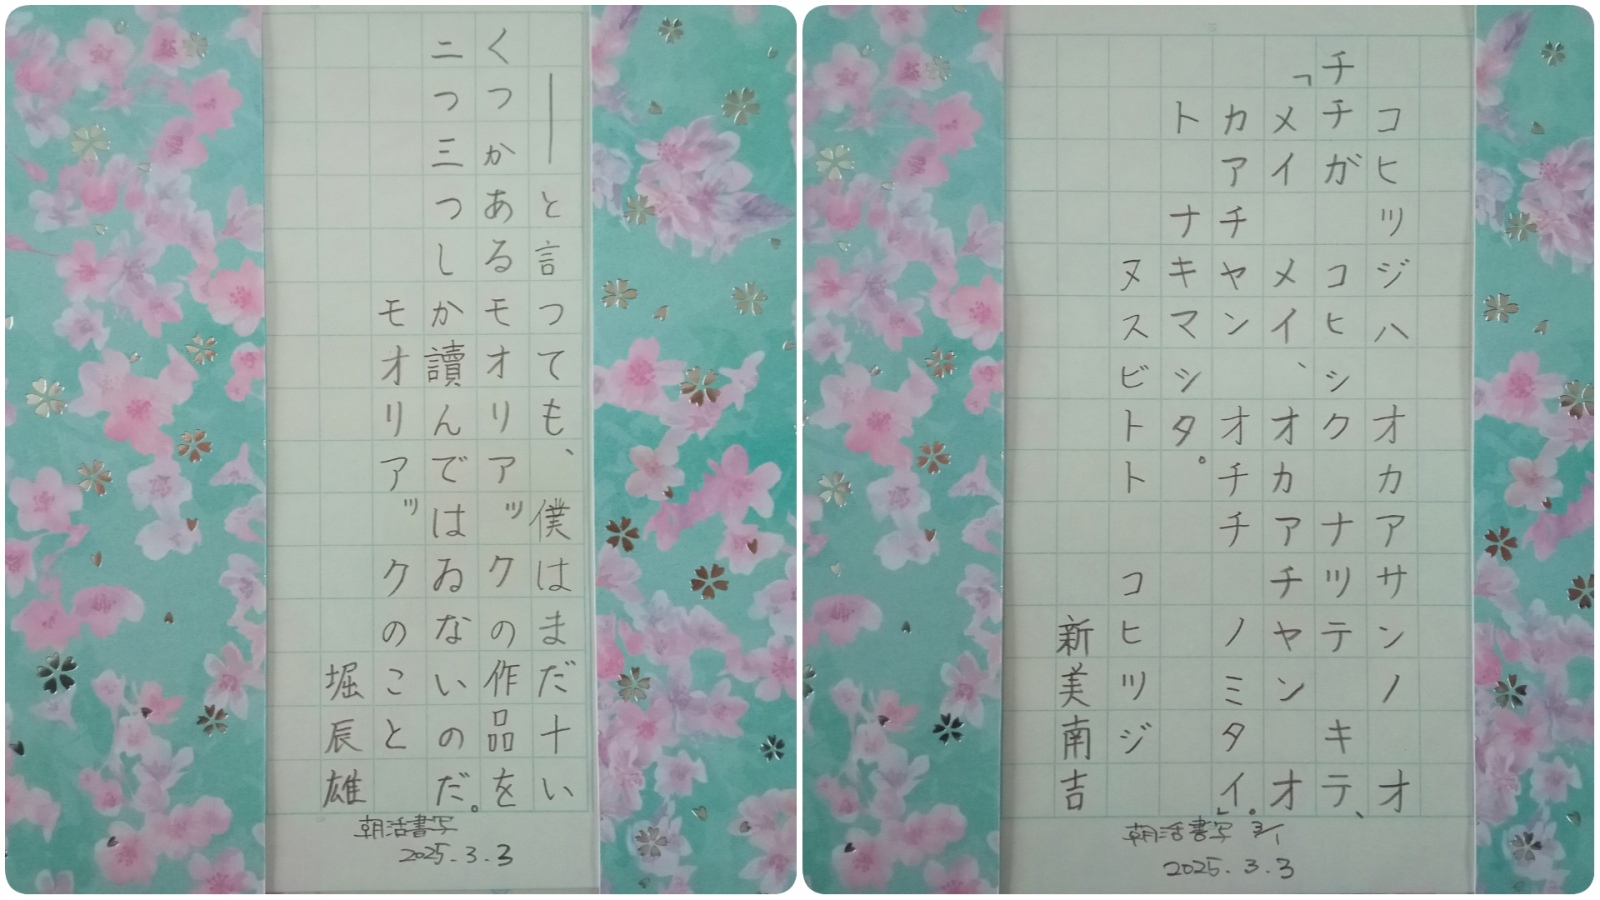 ——と言つても、僕はまだ十い
くつかあるモオリアックの作品を
二つ三つしか讀んではゐないのだ。
モオリアックのこと
堀辰雄
朝活書写
2025.3.3
コヒツジハ オカアサンノ オ
チチガ コヒシク ナツテ キテ、
「メイ メイ、オカアチヤン オ
カアチヤン オチチ ノミタイ。」
ト ナキマシタ。
ヌスビトト コヒツジ
新美南吉
朝活書写 3/1
2025.3.3